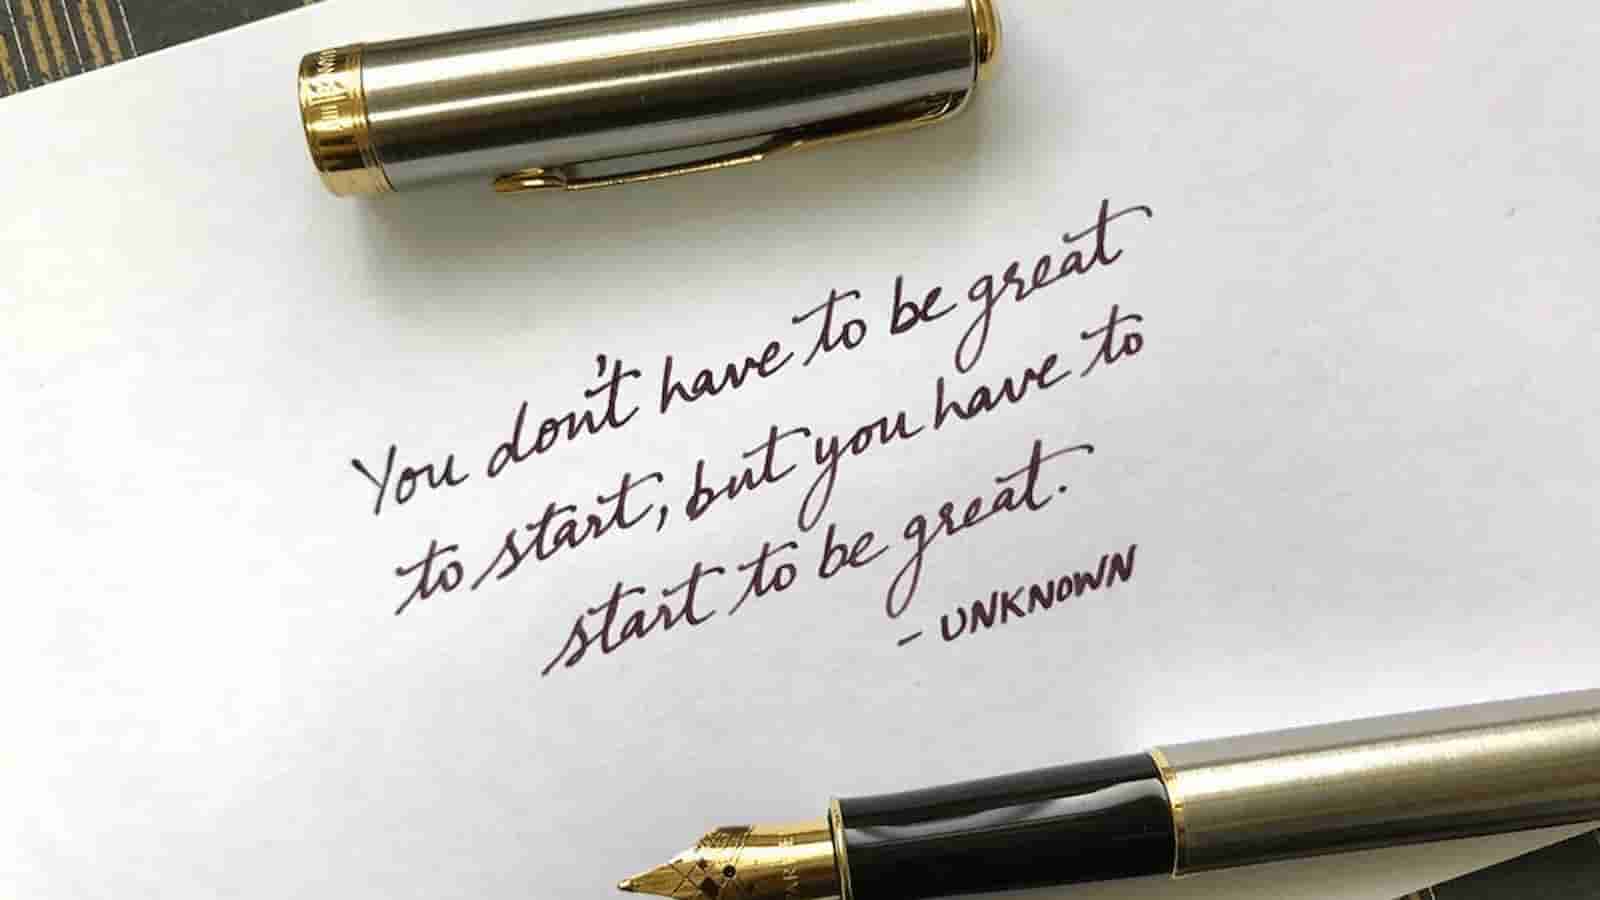 You don't have to be great
to start, but you have to
start to be great.
- UNKNOWN